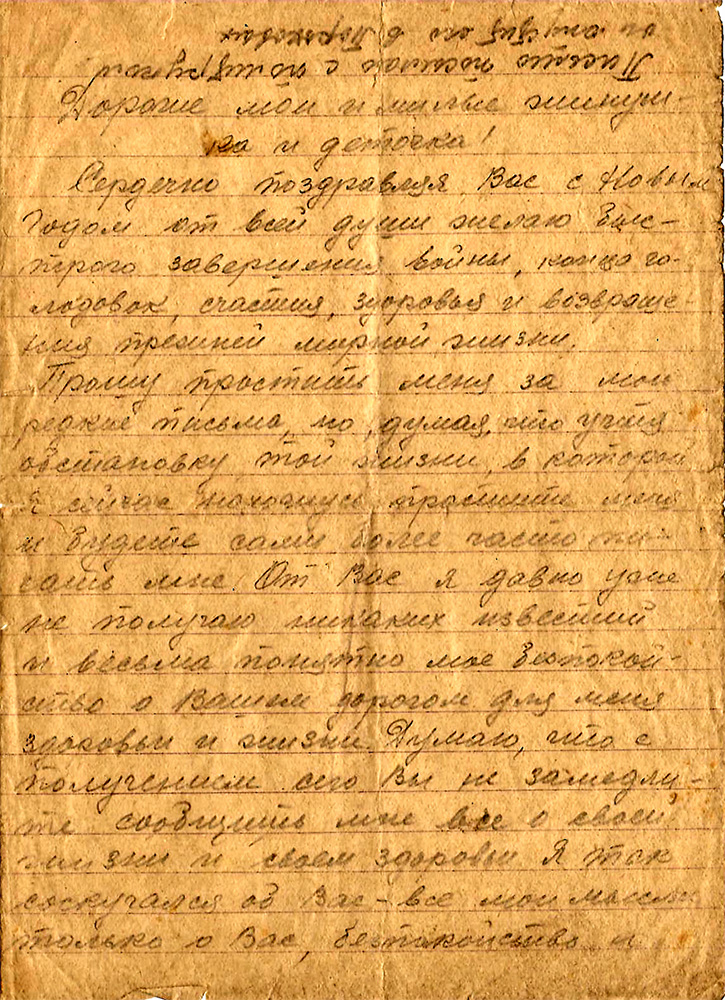 Письмо
Дорогие мои и милые женуш-
ка и деточка!
Сердечно поздравляя Вас с Новым
годом от всей души желаю быс-
трого завершения войны, конца го-
лодовок, счастия, здоровья и возвраще-
ния прежней мирной жизни.
Прошу простить меня за мои
редкие письма, но, думая, что учтя
обстановку той жизни, в которой
я сейчас нахожусь простите меня
и будете сами более часто пи-
сать мне. От Вас я давно уже
не получаю никаких известий
и весьма понятно мое безпокой-
ство о Вашем дорогом для меня
здоровьи и жизни. Думаю, что с
получением сего Вы не замедли-
те сообщить мне все о своей
жизни и своем здоровьи. Я так
соскучался об Вас - все мои мысли
только о Вас, безпокойство и